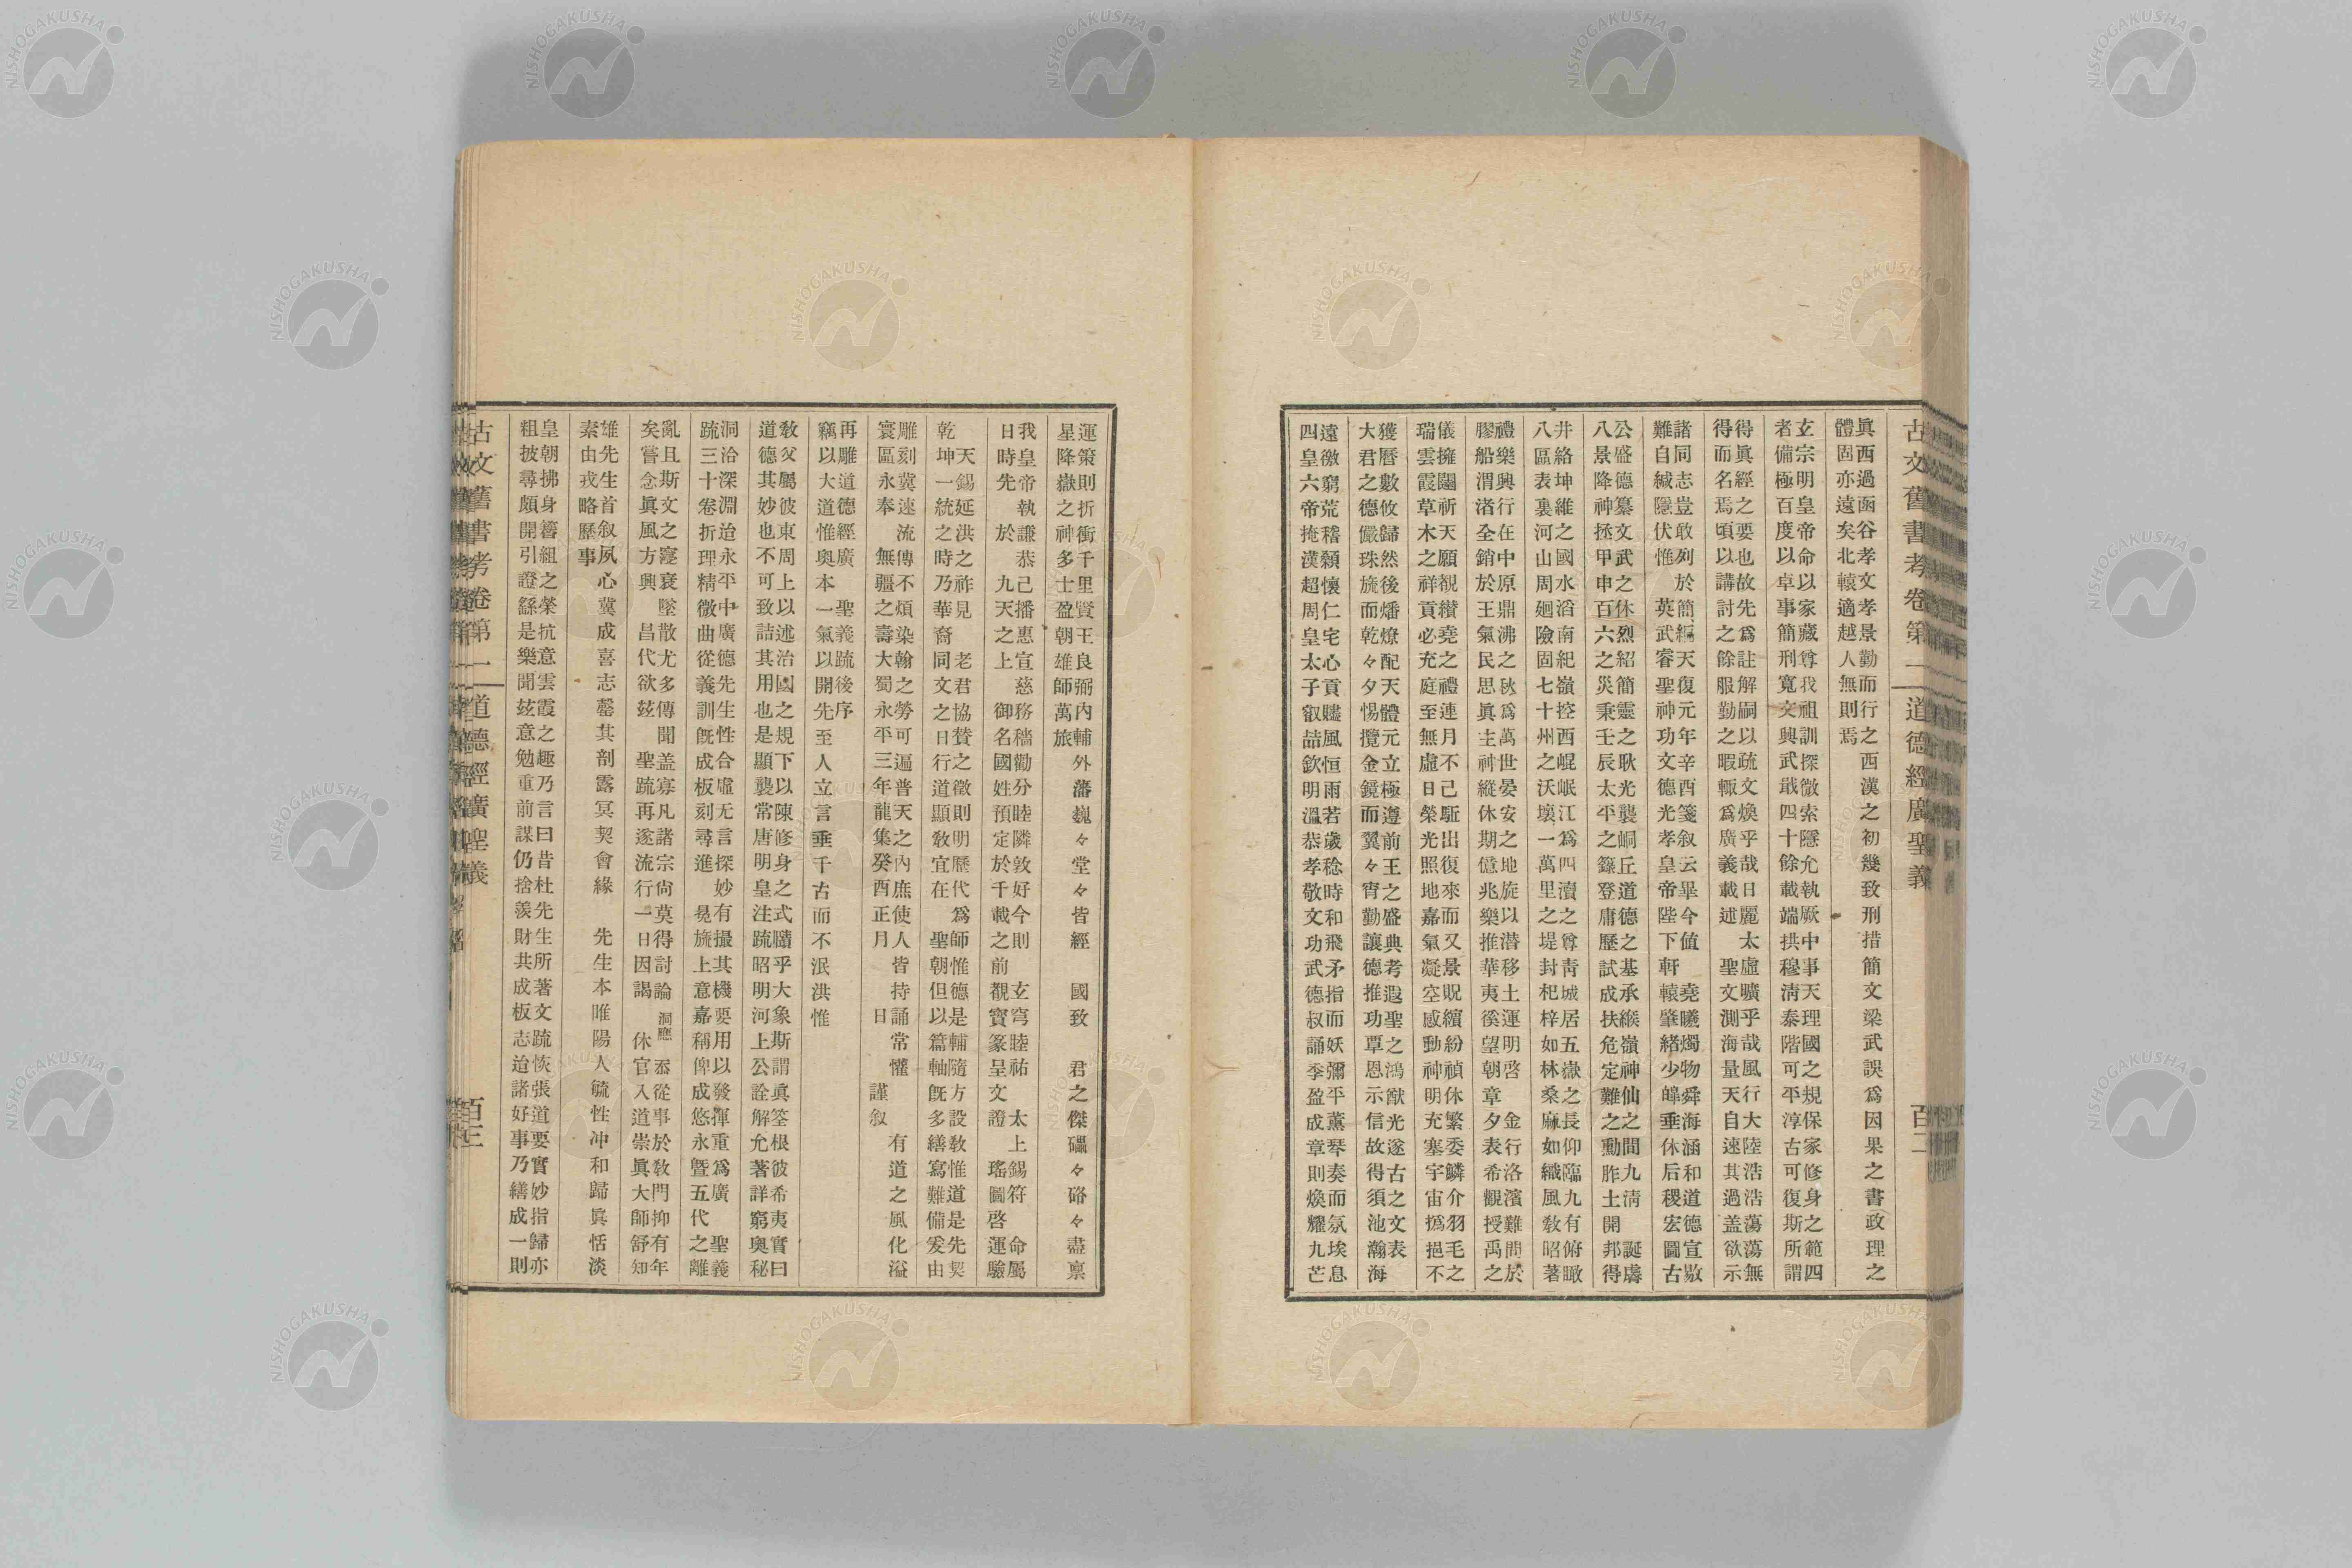 古文舊書考卷第一　道德經廣聖義　百二
眞西過函谷孝文孝景勤而行之西漢之初幾致刑措簡文梁武誤爲因果之書政理之
體固亦遠矣北轅適越人無則焉
玄宗明皇帝命以家藏尊我祖訓探微索隱允執厥中事天理國之規保家修身之範四
者備極百度以卓事簡刑寬文興武戢四十餘載端拱穆淸泰階可平淳古可復斯所謂
得眞經之要也故先爲註解嗣以疏文煥乎哉日麗　太虛曠乎哉風行大陸浩浩蕩蕩無
得而名焉頃以講討之餘服勤之暇輙爲廣義載述　聖文測海量天自速其過盖欲示
諸同志豈敢列　於簡編天復元年辛酉箋叙云畢今値　堯曦燭物舜海涵和道德宣敭
難自緘隱伏惟　英武睿聖神功文德光孝皇帝陛下　軒轅肇緖少皥垂休后稷宏圖古
公盛德纂文武之休烈紹簡靈之耿光襲峒丘道德之基承緱嶺神仙之間九淸　誕膺
八景降神拯甲申百六之災秉壬辰太平之籙登庸歷試成扶危定難之勳胙土開　邦得
井絡坤維之國水滔南紀嶺控西崐岷江爲四瀆之尊靑城居五嶽之長仰臨九有俯瞰
八區表裏河山周廻險固七十州之沃壤一萬里之堤封杞梓如林桑麻如織風敎昭著
禮樂興行在中原鼎沸之秋爲萬世晏安之地旋以潜移土運明啓　金行洛濱難間於
膠船渭渚全銷於王氣民思眞主神縱休期億兆樂推華夷徯望朝章　夕表希觀授禹之
儀擁闥祈天願覩纉堯之禮連月不已駈出復來而又景貺繽紛禎休繁委鱗介羽毛之
瑞雲霞草木之祥貢必充庭至無虛日榮光照地嘉氣凝空感動神明充塞宇宙撝挹不
獲曆數攸歸然後燔燎配天體元立極遵前王之盛典考遐聖之鴻猷光遂古之文表
大君之德儼珠旒而乾々夕惕攬金鏡而翼々宵勤讓德推功覃恩示信故得須池瀚海
遠徼窮荒稽顙懷仁宅心貢贐風恒雨若歲稔時和飛矛指而妖彌平薰琴奏而氛埃息
四皇六帝掩漢超周皇太子叡喆欽明溫恭孝敬文功武德叔誦季盈成章則煥耀九芒
運策則折衝千里賢王良弼內輔外藩巍々堂々皆經　國致　君之傑礧々硌々盡禀
星降嶽之神多士盈朝雄師萬旅
我皇帝　執謙恭己播惠宣　慈務穡勸分睦隣敦好今則　玄穹睦祐　太上錫符　命屬
日時先　於　九天之上　御名國姓預定於千載之前　覩寶篆呈文　證　瑤圖啓　運驗
天錫延洪之祚見　老君協賛之徵則明歷代　爲師惟德是輔隨方設敎惟道是先契
乾　坤一統之時乃華裔　同文之日行道顯敎宜在　聖朝但以篇軸旣多繕寫難備爰由
雕刻冀速　流傳不煩染翰之勞可遍普天之內庶使人　皆　持　誦　常　懽　有　道　之　風　化　溢
寰區永奉　無疆之壽大蜀永平三年龍集癸酉正月　日　謹　叙
再雕道德經廣　聖義疏後序
竊以大道惟奧本一氣以開先至人立言垂千古而不泯洪惟
敎父屬彼東周上以述治國之規下以陳修身之式賾乎大象斯謂眞筌根彼希夷實曰
道德其妙也不可致詰其用也是顯襲常唐明皇之注疏昭明河上公詮解允著詳窮奧秘
洞洽深淵迨永平中廣德先生性合虛无言探妙有撮其機要用以發揮重爲廣　聖義
疏三十卷折理精微曲從義訓旣成板刻尋進　晃旒上意嘉稱俾成悠永曁五代之離
亂且斯文之寖衰　墜散尤多傳聞盖寡凡諸宗尙莫得討論　洞廳　忝從事於敎門抑有年
矣嘗念眞風方興　昌代欲玆　聖疏再遂流行一日因謁　休官入道崇眞大師舒知
雄先生首叙夙心冀成喜志罄其剖露冥契會緣　先生本睢陽人毓性冲和歸眞恬淡
素由戎略歷事
皇朝拂身簪組之榮抗意雲霞之趣乃言曰昔杜先生所著文疏恢張道要實妙指歸亦
粗披尋頗開引證繇是樂聞玆意勉重前謀仍捨羨財共成板志迨諸好事乃繕成一則
古文舊書考卷第一　道德經廣聖義　百三